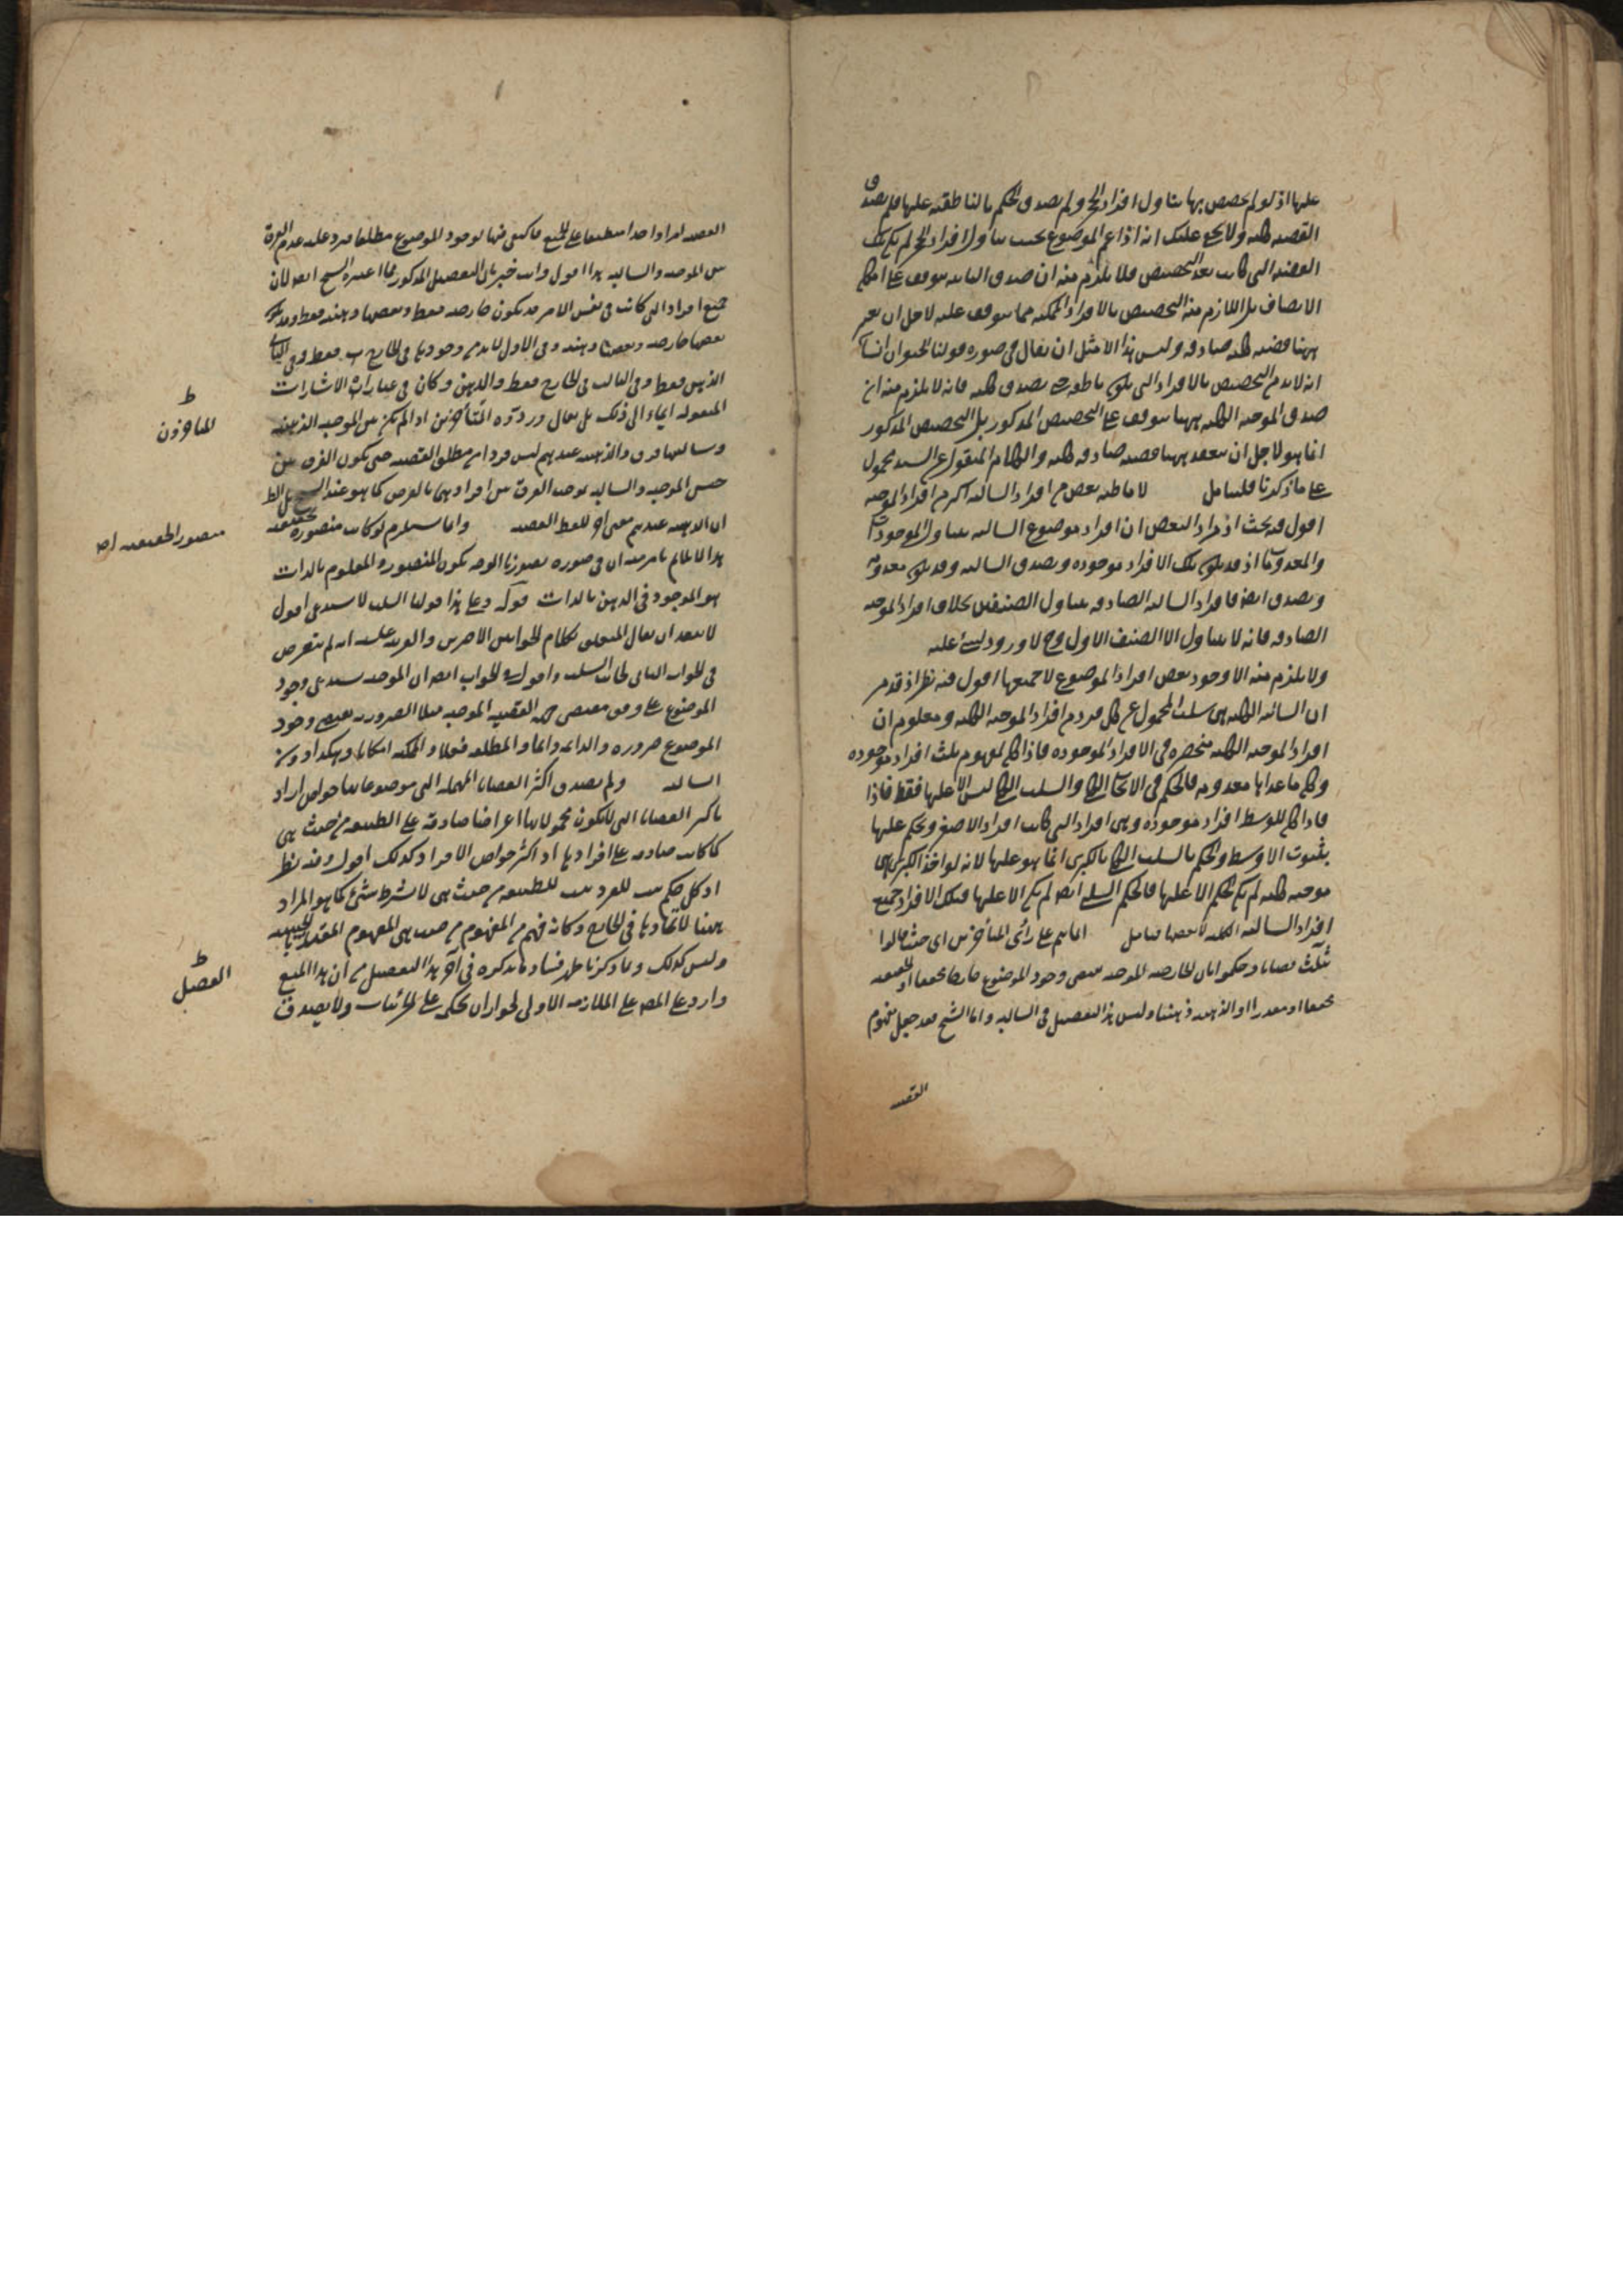 عليها اذ لو لم يخصص بها يتناول افراد الحجر ولم يصدق الحكم بالناطقية عليها فلم يصدق
القضية كلية ولا يخفى عليك انه اذا عم الموضوع بحيث يتناول افراد الحجر لم يكن تلك
القضية التي كانت بعد التخصيص فلا يلزم منه ان صدق السالبة موقوف على امكان
الاتصاف بل اللازم منه التخصيص بالافراد الممكنة مما يتوقف عليه لاجل ان يعتبر
ههنا قضية كلية صادقة وليس هذا الا مثل ان يقال في صورة قولنا الحيوان انسان
انه لا بد من التخصيص بالافراد التي يكون ناطقة حتى يصدق كلية فانه لا يلزم منه ان
صدق الموجبة الكلية ههنا يتوقف على التخصيص المذكور بل التخصيص المذكور
انما هو لاجل ان ينعقد ههنا قضية صادقة كلية والكلام المنقول عن السيد محمول
على ما ذكرنا فليتامل لا ما ظنه بعض من افراد السالبة اكثر من افراد الموجبة
اقول فيه بحث اذ مراد البعض ان افراد موضوع السالبة يتناول الموجودات
والمعدومات اذ قد يكون تلك الافراد موجودة ويصدق السالبة وقد يكون معدومة
ويصدق ايضا فافراد السالبة الصادقة يتناول الصنفين بخلاف افراد الموجبة
الصادقة فانه لا يتناول الا الصنف الاول وح لا ورود لشيء عليه
ولا يلزم منه الا وجود بعض افراد الموضوع لا جميعها اقول فيه نظر اذ قد مر
ان السالبة الكلية هي سلب المحمول عن كل فرد من افراد الموجبة الكلية ومعلوم ان
افراد الموجبة الكلية منحصرة في الافراد الموجودة فاذا كان لمفهوم ثلث افراد موجودة
وكان ما عداها معدومة فالحكم في الايجاب الكلي والسلب الكلي ليس الا عليها فقط فاذا
فاذا كان للوسط افراد موجودة وهي افراد التي كانت افراد الاصغر ويحكم عليها
بثبوت الاوسط والحكم بالسلب الكلي بالكبرى انما هو عليها لانه لو اخذ الكبرى
موجبة كلية لم يكن الحكم الا عليها فالحكم السلبي ايضا لم يكن الا عليها فتلك الافراد جميع
افراد السالبة الكلية لا بعضها فتامل انما يتم على رأي المتأخرين اي حيث قالوا
ثلث قضايا وحكموا بان الخارجية الموجبة يقتضي وجود الموضوع خارجا محققا او الحقيقية
محققا او مقدرا او الذهنية ذهنا وليس هذا التفصيل في السالبة واما الشيخ فقد جعل مفهوم
القضية
القضية امرا واحدا منطبقا على الجميع فاكتفى فيها بوجود الموضوع مطلقا فيرد عليه عدم الفرق
بين الموجبة والسالبة هذا اقول وانت خبير بان التفصيل المذكور مما اعتبره الشيخ ايضا لان
جميع افراد التي كانت في نفس الامر قد يكون خارجية فقط وبعضها ذهنية فقط وقد يكون
بعضها خارجية وبعضها ذهنية وفي الاول لا بد من وجودها في الخارج فقط وفي الثاني
الذهن فقط وفي الثالث في الخارج فقط والذهن وكان في عبارات الاشارات
المنقولة ايماء الى ذلك بل يقال ورود المتأخرين اذا لم يكن بين الموجبة الذهنية
وسالبها فرق والذهنية عندهم ليس فردا من مطلق القضية حتى يكون الفرق بين
جنس الموجبة والسالبة يوجب الفرق بين افرادهما بالعرض كما هو عند الشيخ
ان الذهنية عندهم معنى آخر للفظ القضية وانما يستلزم لو كانت متصورة بحقيقته
هذا الكلام
هو الموجود في الذهن بالذات قوله وعلى هذا قولنا السلب لا يستدعي اقول
لا يبعد ان يقال المتعلق بكلام الجوابين الاخيرين والقرينة عليه انه لم يتعرض
في الجواب الثاني لجانب السلب واقول في الجواب ايضا ان الموجبة يستدعي وجود
الموضوع على وفق مقتضى جهة القضية الموجبة مثلا الضرورية يقتضي وجود
الموضوع ضرورة والدائمة دائما والمطلقة فعلا والممكنة امكانا وهكذا دون
السالبة ولم يصدق اكثر القضايا المهملة التي موضوعاتها خواص اراد
باكثر القضايا التي يكون محمولاتها اعراضا صادقة على الطبيعة من حيث هي
كما كانت صادقة على افرادها اذ اكثر خواص الافراد كذلك اقول وفيه نظر
اذ كل حكم ثبت للفرد ثبت للطبيعة من حيث هي لا بشرط شيء كما هو المراد
ههنا لاتحادها في الخارج وكانه فهم من المفهوم من حيث هي المفهوم المقيد بالحيثية
وليس كذلك وبما ذكرنا ظهر فساد ما ذكره في آخر هذا التفصيل من أن هذا المنع
وارد على المص على الملازمة الاولى لجواز ان يحكم على الجزئيات ولا يصدق
ط
المتاخرين
متصور الحقيقة اص
ط
التفصيل